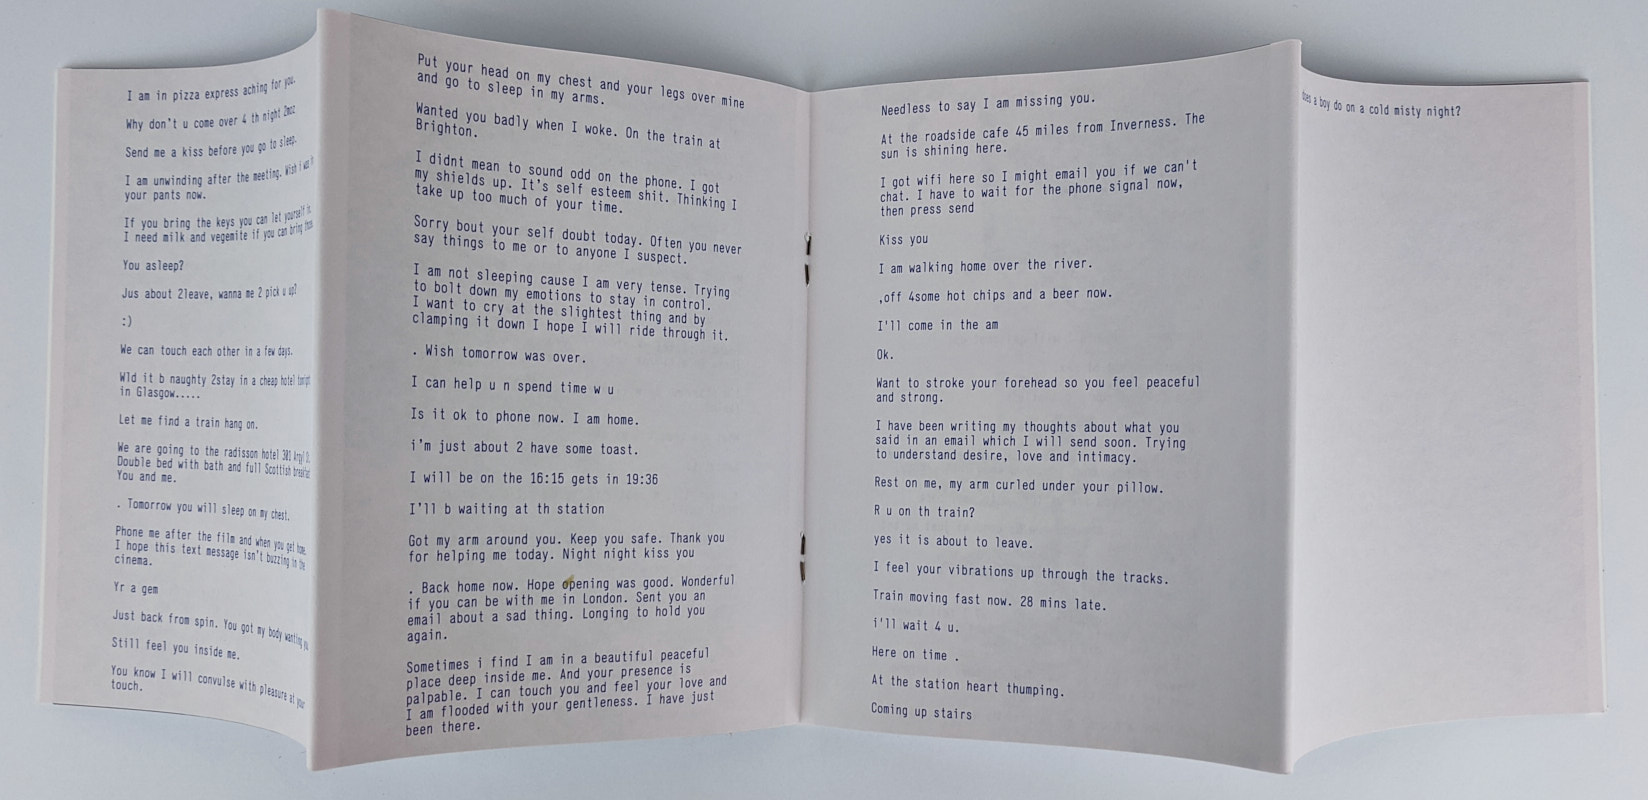 I am in pizza express aching for you.
Why don't u come over 4 th night 2moz
Send me a kiss before you go to sleep.
I am unwinding after the meeting. Wish i was
your pants now.
If you bring the keys you can let yourself in.
I need milk and vegemite if you can bring
You asleep?
Jus about 2leave, wanna me 2 pick u up?
:)
We can touch each other in a few days.
Wld it b naughty 2stay in a cheap hotel tonight
in Glasgow.....
Let me find a train hang on.
We are going to the radisson hotel 301
Double bed with bath and full Scottish breakfast
You and me.
. Tomorrow you will sleep on my chest.
Phone me after the film and when you get home.
I hope this text message isn't buzzing in the
cinema.
Yr a gem
Just back from spin. You got my body wanting you
Still feel you inside me.
You know I will convulse with pleasure at your
touch.
Put your head on my chest and your legs over mine
and go to sleep in my arms.
Wanted you badly when I woke. On the train at
Brighton.
I didnt mean to sound odd on the phone. I got
my shields up. It's self esteem shit. Thinking I
take up too much of your time.
Sorry bout your self doubt today. Often you never
say things to me or to anyone I suspect.
I am not sleeping cause I am very tense. Trying
to bolt down my emotions to stay in control.
I want to cry at the slightest thing and by
clamping it down I hope I will ride through it.
. Wish tomorrow was over.
I can help u n spend time w u
Is it ok to phone now. I am home.
i'm just about 2 have some toast.
I will be on the 16:15 gets in 19:36
I'll b waiting at th station
Got my arm around you. Keep you safe. Thank you
for helping me today. Night night kiss you
. Back home now. Hope opening was good. Wonderful
if you can be with me in London. Sent you an
email about a sad thing. Longing to hold you
again.
Sometimes i find I am in a beautiful peaceful
place deep inside me. And your presence is
palpable. I can touch you and feel your love and
I am flooded with your gentleness. I have just
been there.
Needless to say I am missing you.
At the roadside cafe 45 miles from Inverness. The
sun is shining here.
I got wifi here so I might email you if we can't
chat. I have to wait for the phone signal now,
then press send
Kiss you
I am walking home over the river.
,off 4some hot chips and a beer now.
I'll come in the am
Ok.
Want to stroke your forehead so you feel peaceful
and strong.
I have been writing my thoughts about what you
said in an email which I will send soon. Trying
to understand desire, love and intimacy.
Rest on me, my arm curled under your pillow.
R u on th train?
yes it is about to leave.
I feel your vibrations up through the tracks.
Train moving fast now. 28 mins late.
i'll wait 4 u.
Here on time .
At the station heart thumping.
Coming up stairs
does a boy do on a cold misty night?